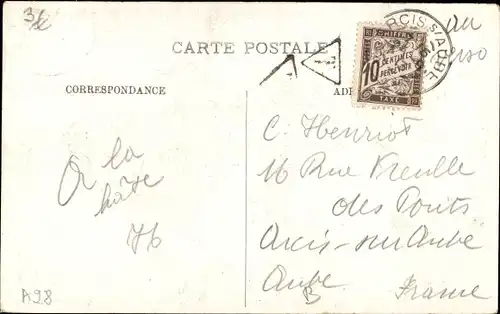 3/
ARCIS S/AUBE
au
verso
CARTE POSTALE
CHIFFRE
10
CENTIMES
À
PERCEVOIR
TAXE
T
CORRESPONDANCE
ADR
C. Henriot
16 Rue
des Ponts
Arcis-sur-Aube
Aube
France
A la
hâte
A98